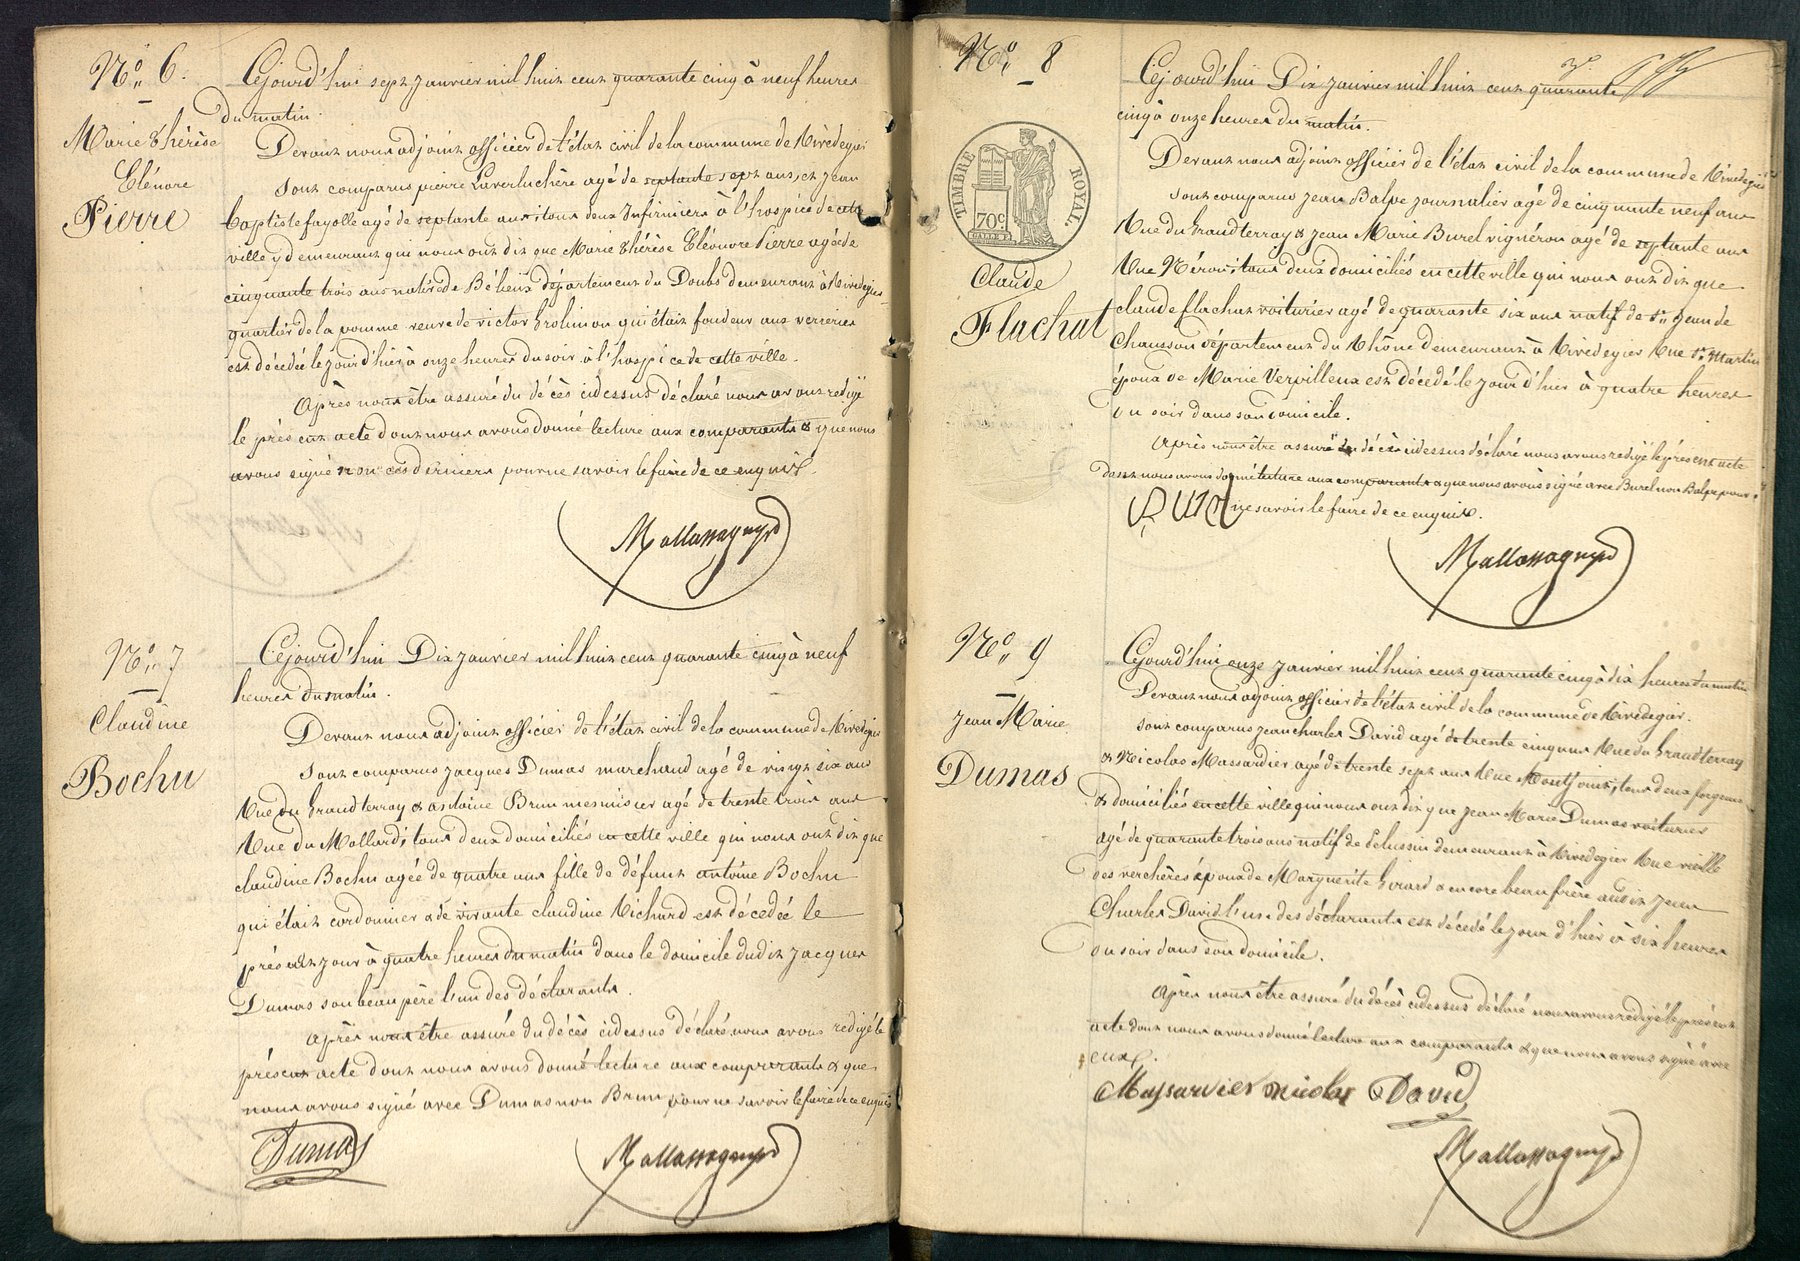 N.° 6.
Marie Thérèse
Elénore
Pierre
Cejourd'hui sept janvier mil huit cent quarante cinq à neuf heures
du matin.
Devant nous adjoint officier de l'état civil de la commune de Rivedegier
sont comparus pierre Laverluchère agé de septante sept ans, et jean
baptiste fayolle agé de septante ans tous deux Infirmiers à l'hospice de cette
ville y demeurant qui nous ont dit que Marie thérèse Eléonore Pierre agée de
cinquante trois ans native de Bélieux département du Doubs demeurant à Rivedegier
quartier de la pomme veuve de victor Grolimon qui était fondeur aux verieries
est décédée le jour d'hier à onze heures du soir à l'hospice de cette ville.
Après nous être assuré du décès cidessus déclaré nous avons redigé
le présent acte dont nous avons donné lecture aux comparants & que nous
avons signé non ces derniers pour ne savoir le faire de ce enquis.
Mallassagnyd
N.° 7
Claudine
Bochu
Cejourd'hui Dix janvier mil huit cent quarante cinq à neuf
heures du matin.
Devant nous adjoint officier de l'état civil de la commune de Rivedegier
sont comparus jacques Dumas marchand agé de vingt six ans
Rue du Grand terray & antoine Brun menuisier agé de trente trois ans
Rue du Mollard; tous deux domiciliés en cette ville qui nous ont dit que
claudine Bochu agée de quatre ans fille de défunt antoine Bochu
qui était cordonnier & de vivante claudine Richard est décedée le
présent jour à quatre heures du matin dans le domicile dudit jacques
Dumas son beau père l'un des déclarants.
Après nous être assuré du décès cidessus déclaré nous avons redigé le
présent acte dont nous avons donné lecture aux comparants & que
nous avons signé avec Dumas non Brun pour ne savoir le faire de ce enquis
Dumas
Mallassagnyd
N.° 8
TIMBRE ROYAL.
70c
Claude
Flachat
Cejourd'hui Dix janvier mil huit cent quarante
cinq à onze heures du matin.
Devant nous adjoint officier de l'état civil de la commune de Rivedegier
sont comparus jean Balpe journalier agé de cinquante neuf ans
Rue du Grand terray & jean Marie Burel vignéron agé de septante ans
Rue Néron; tous deux domiciliés en cette ville qui nous ont dit que
claude flachat voiturier agé de quarante six ans natif de St jean de
Chaussan département du Rhône demeurant à Rivedegier Rue St Martin
époux de Marie Vervilleux est décedé le jour d'hier à quatre heures
du soir dans son domicile.
Après nous être assuré du décès cidessus déclaré nous avons redigé le présent acte
dont nous avons donné lecture aux comparants & que nous avons signé avec Burel non Balpe pour
ne savoir le faire de ce enquis.
Mallassagnyd
N.° 9
Jean Marie
Dumas
Cejourd'hui onze janvier mil huit cent quarante cinq à dix heures du matin
Devant nous adjoint officier de l'état civil de la commune de Rivedegier.
sont comparus jean charles David agé de trente cinq ans Rue du Grand terray
& Nicolas Massardier agé de trente sept ans Rue Montjoint, tous deux forgeurs
& domiciliés en cette ville qui nous ont dit que jean Marie Dumas voiturier
agé de quarante trois ans natif de Pélussin demeurant à Rivedegier Rue vieille
des verchères époux de Marguerite Girard & encore beau frère audit jean
Charles David l'un des déclarants est décédé le jour d'hier à six heures
du soir dans son domicile.
Après nous être assuré du décès cidessus déclaré nous avons redigé le présent
acte dont nous avons donné lecture aux comparants & que nous avons signé avec
eux.
Massardier nicolas David
Mallassagnyd